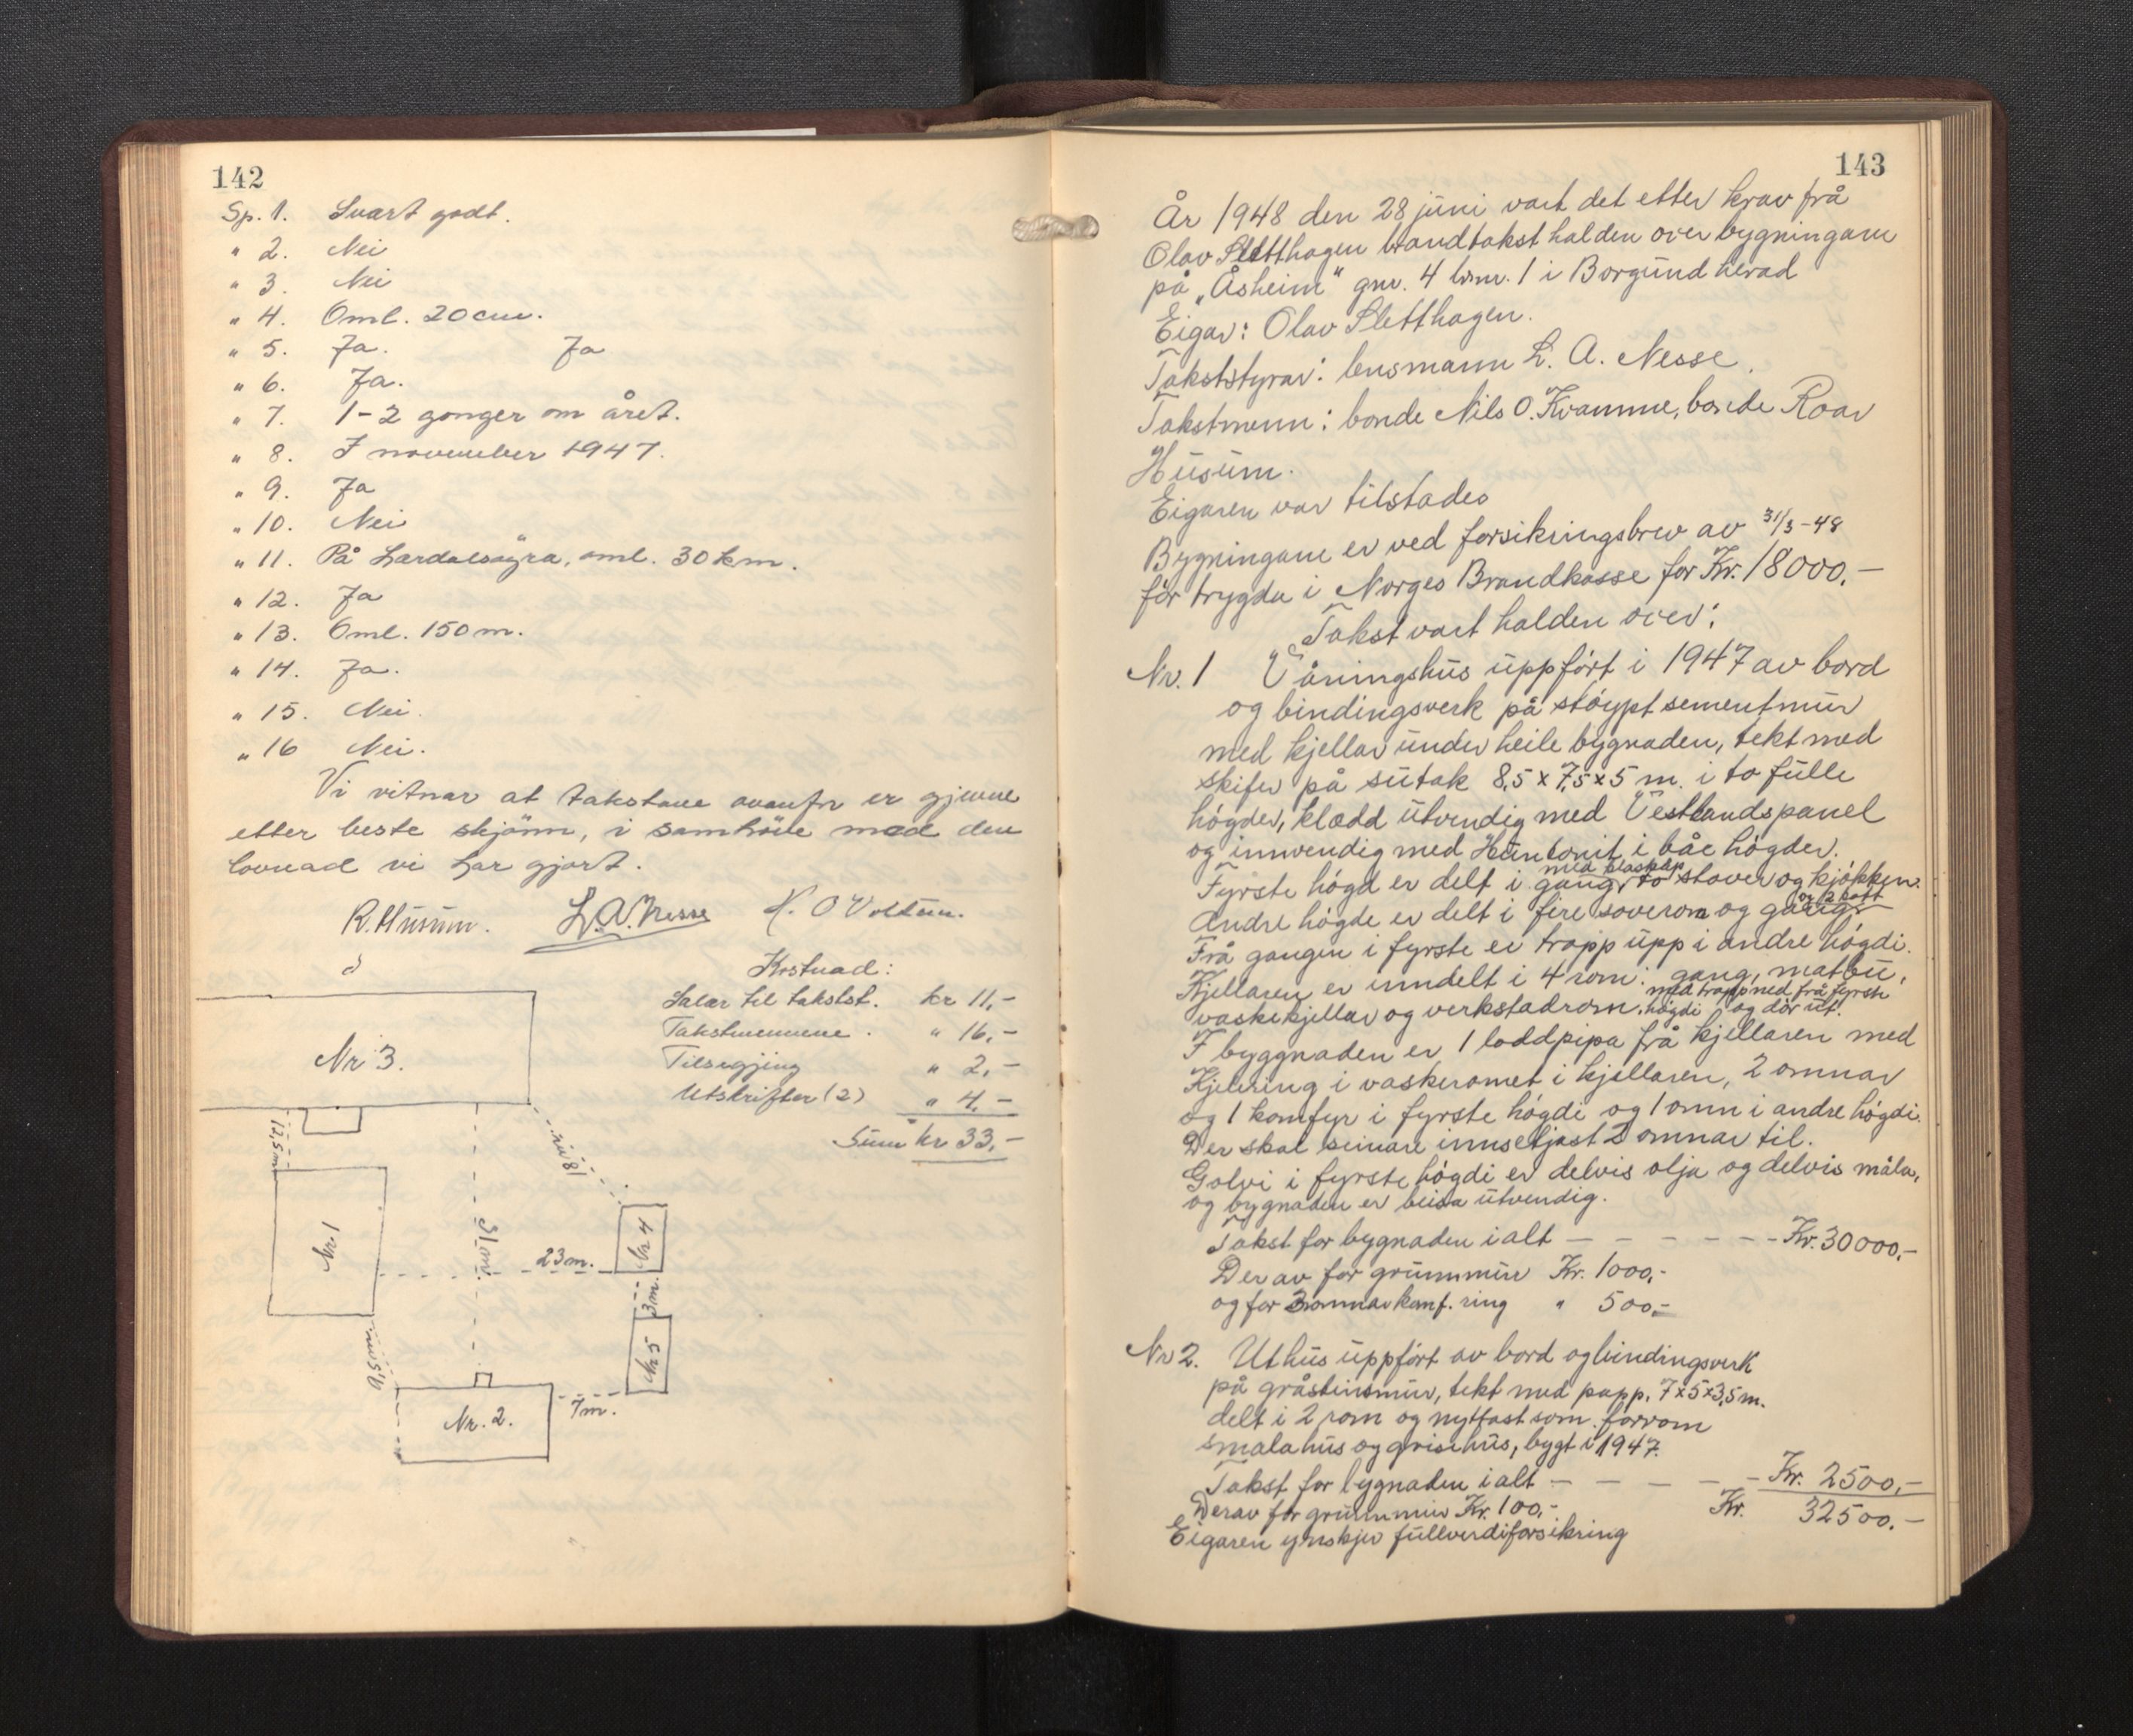 142
Sp. 1. Svært godt.
" 2. Nei
" 3. Nei
" 4. Oml. 20 cm.
" 5. Ja. Ja
" 6. Ja.
" 7. 1-2 gonger om året.
" 8. I november 1947.
" 9. Ja
" 10. Nei
" 11. På Lærdalsøyra, oml. 30 km.
" 12. Ja
" 13. Oml. 150 m.
" 14. Ja.
" 15. Nei.
" 16 Nei.
Vi vitnar at takstane ovanfor er gjevne
etter beste skjønn, i samhøve med den
lovnad vi har gjort.
R. Husum. L.A. Nesse O Voldum.
Kostnad:
Salær til takstst. kr 11,-
Takstmennene. " 16,-
Tilsegjing " 2,-
Utskrifter (2) " 4,-
Sum kr 33,-
Nr 3.
12,5 m
18 m.
Nr 1
31 m.
23 m.
Nr 4
3 m.
Nr 5
9,5 m.
Nr. 2.
7 m.
143
År 1948 den 28 juni vart det etter krav frå
Olav Sletthagen brandtakst halden over bygningane
på „Åsheim" gnr. 4 brnr. 1 i Borgund herad
Eigar: Olav Sletthagen.
Takststyrar: lensmann L. A. Nesse.
Takstmenn: bonde Nils O. Kvamme, bonde Roar
Husum.
Eigaren var tilstades
Bygningane er ved forsikringsbrev av 31/3-48
før trygda i Norges Brandkasse for Kr. 18000.-
Takst vart halden over:
Nr. 1 Våningshus uppført i 1947 av bord
og bindingsverk på støypt sementmur
med kjellar under heile bygnaden, tekt med
skifer på sutak 8,5 x 7,5 x 5 m. i to fulle
høgder, klædd utvendig med Vestlandspanel
og innvendig med Huntonit i båe høgder.
med klæskåp
Fyrste høgd er delt i gang, to stover og kjøkken.
og 2 kott
Andre høgde er delt i fire soverom og gang
Frå gangen i fyrste er trapp upp i andre høgdi.
Kjellaren er inndelt i 4 rom: gang, matbu,
med trapp ned frå fyrste
vaskekjellar og verkstadrom. høgdi og dør ut.
I byggnaden er 1 loddpipa frå kjellaren med
Kjelering i vaskeromet i kjellaren, 2 omnar
og 1 komfyr i fyrste høgdi og 1 omn i andre høgdi.
Der skal seinare innsetjast 2 omnar til.
Golvi i fyrste høgdi er delvis olja og delvis måla,
og bygnaden er beisa utvendig.
Takst for bygnaden ialt - - - - - - Kr. 30000,-
Derav for grunnmur Kr. 1000,-
og for 3 omnar komf. ring " 500,-
Nr 2. Uthus uppført av bord og bindingsverk
på gråsteinsmur, tekt med papp. 7x5x3,5 m.
delt i 2 rom og nyttast som forrom
smalahus og grisehus, bygt i 1947.
Takst for bygnaden ialt - - - - - Kr. 2500,-
Derav for grunnmur Kr. 100,- Kr. 32500.-
Eigaren ynskjer fullverdiforsikring